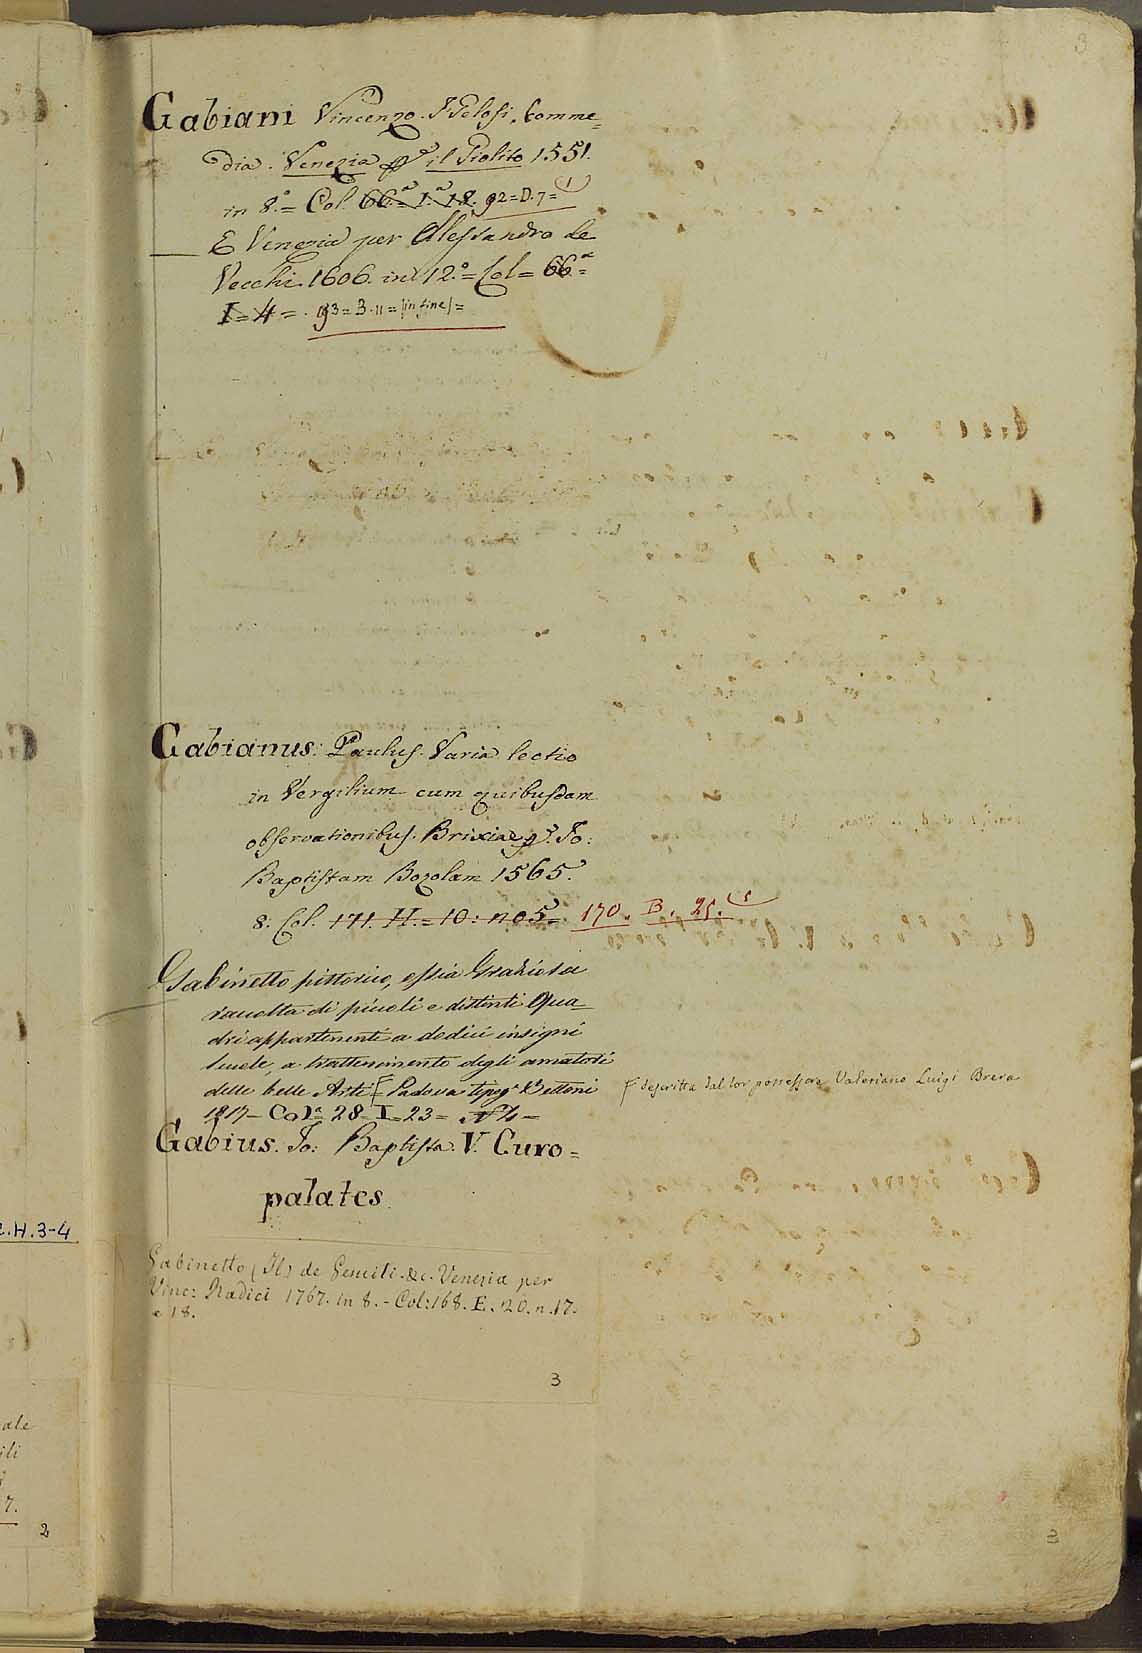 3
Gabiani Vincenzo. I Gelosi, Comme=
dia. Venezia app.º il Giolito 1551.
in 8.º = Col. 66.ª I.ª 18. 92=D.7= (1)
E Venezia per Alessandro de
Vecchi. 1606. in 12.º = Col = 66.ª =
I = 4 = . 93 = 3.11 = (in fine) =
Gabianus: Paulus. Varia lectio
in Vergilium cum quibusdam
observationibus. Brixiae p.r Jo:
Baptistam Bozolam 1565.
8. Col. 171. H. = 10: no 5 = 170. B. 25. (5
Gabinetto pittorico, ossia Graziosa
raccolta di piccoli e distinti Qua=
dri appartenenti a dodici insigni
scuole, a trattenimento degli amatori
delle belle Arti [ Padova tipog.ª Bettoni
[ descritta dal lor possessore Valeriano Luigi Brera
1817 - Col.ª 28 I = 23 = N 4 =
Gabius. Jo: Baptista. V. Curo=
palates.
Gabinetto (Il) de Gesuiti. &c. Venezia per
Vinc: Radici 1767. in 8. - Col: 168. E. 20. n. 17.
e 18.
3
3
.H.3-4
ale
ili
7.
2